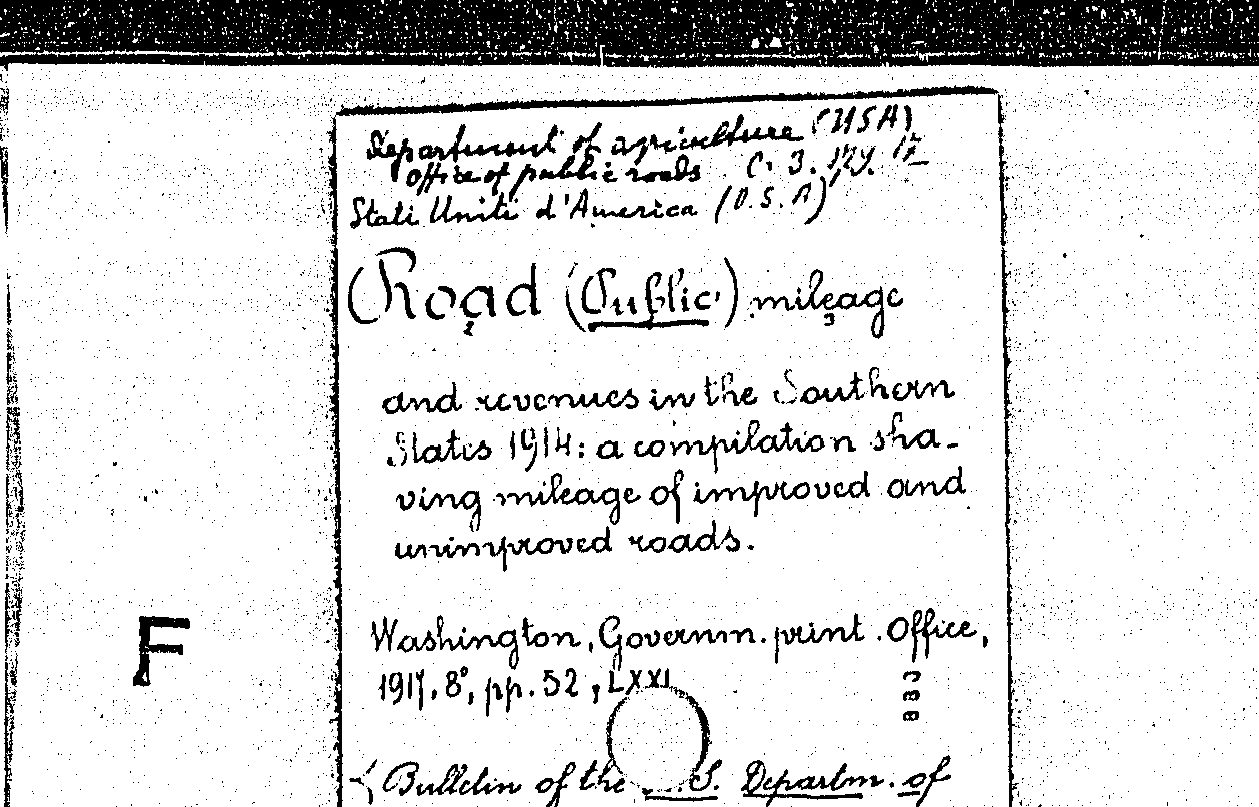 Department of agriculture (USA)
Office of public roads C. 3. 124. 17
Stati Uniti d'America (U.S.A)
Road (Public) mileage
2 3
and revenues in the Southern
States 1914: a compilation sha-
ving mileage of improved and
unimproved roads.
F
Washington, Governm. print. Office,
1917. 8°, pp. 52, LXXI
Bulletin of the S. Departm. of